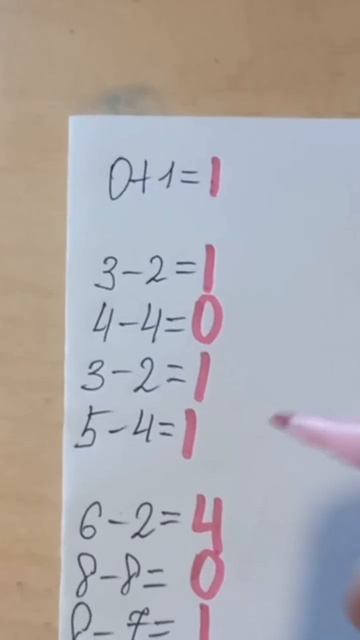 0+1=1
3-2=1
4-4=0
3-2=1
5-4=1
6-2=4
8-8=0
8-7=1